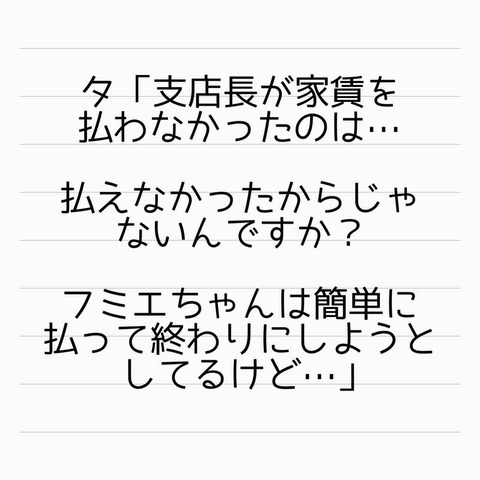 タ「支店長が家賃を
払わなかったのは…
払えなかったからじゃ
ないんですか？
フミエちゃんは簡単に
払って終わりにしようと
してるけど…」